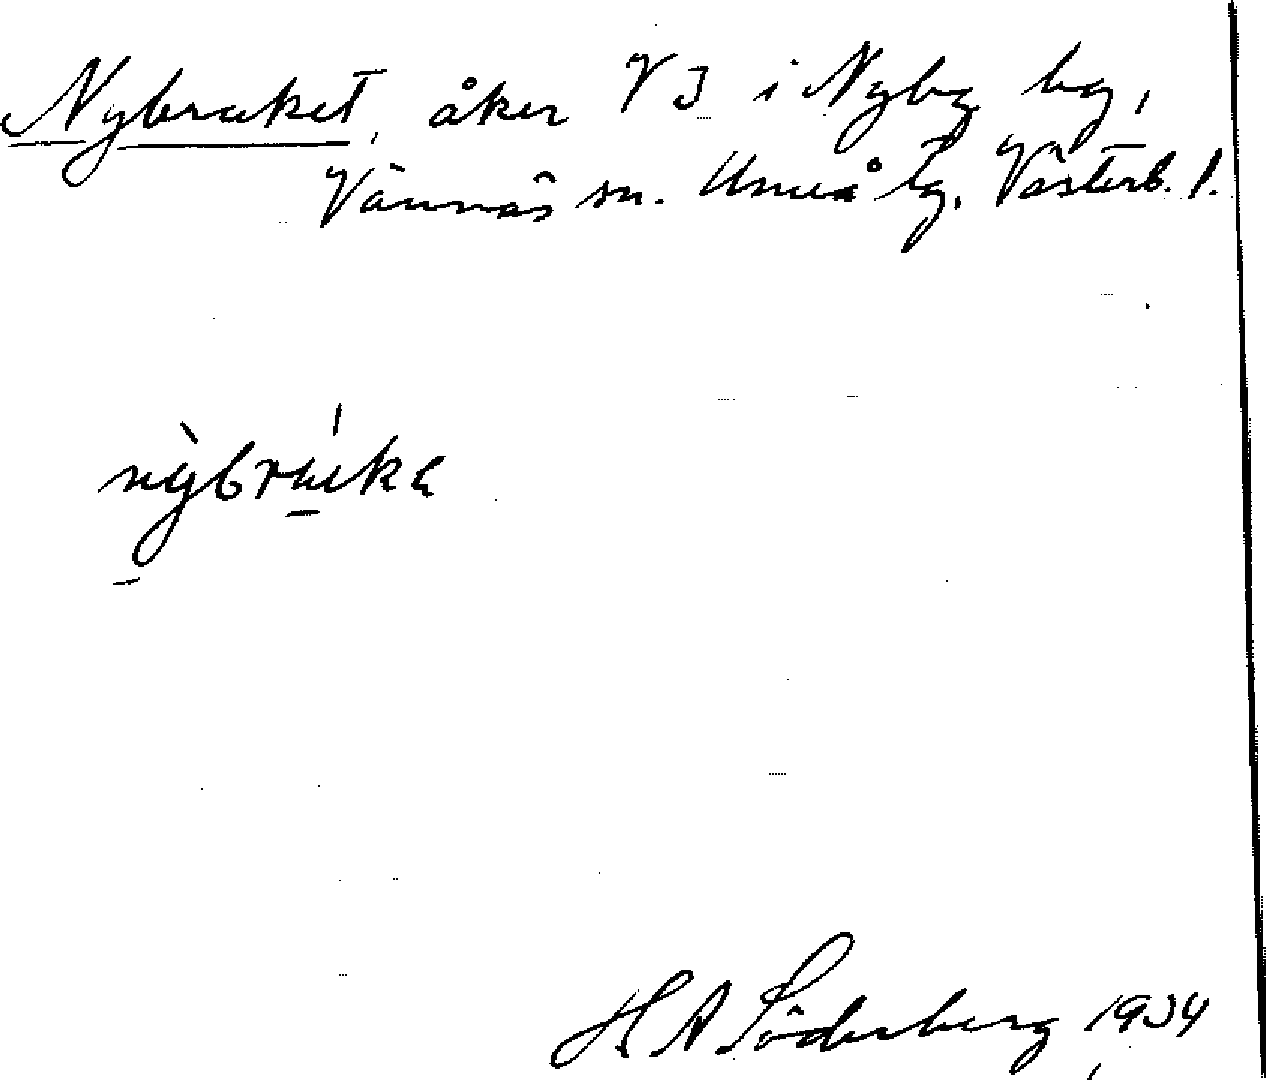 Nybruket, åker V3 i Nyby by,
Vännäs sn. Umeå tg. Västerb. l.
nỳbrúke
H A Söderberg 1934